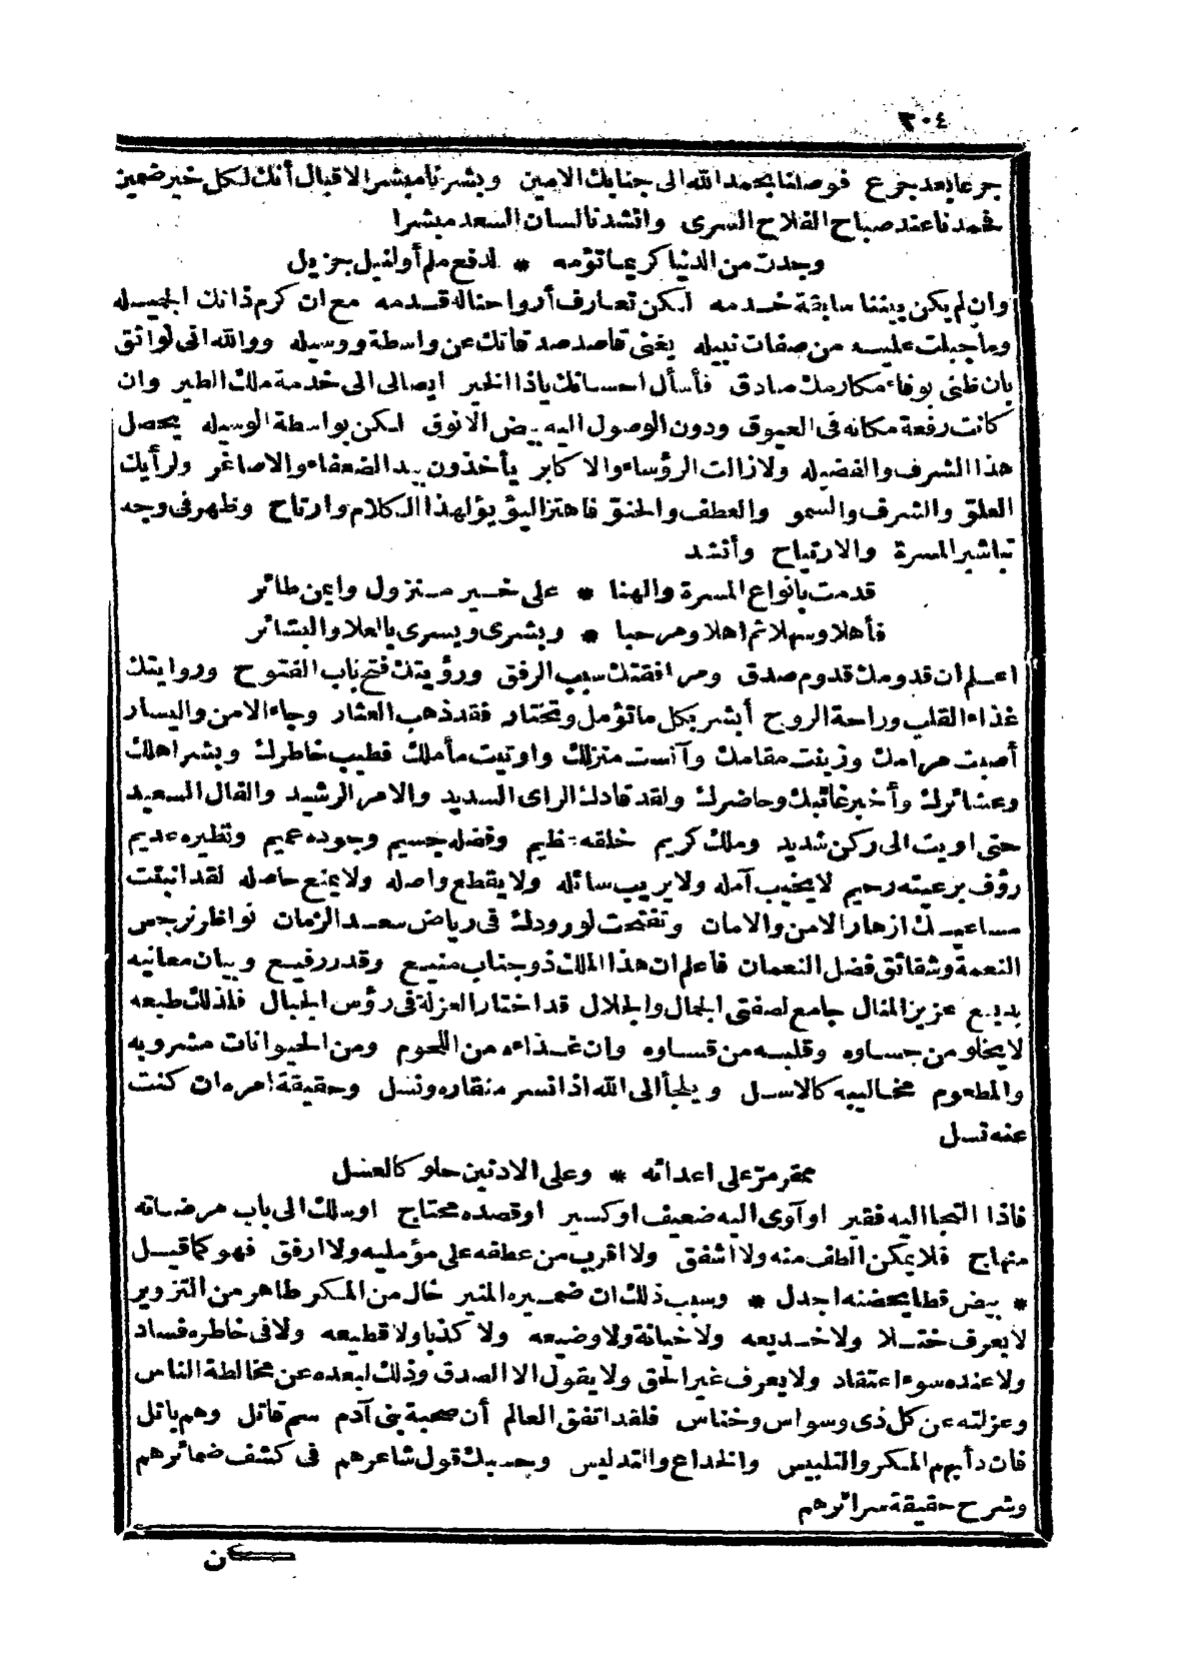 ٣٠٤
جزعا بعد جزع فوصلنا بحمد الله الى جنابك الامين وبشرنا مبشر الاقبال أنك لكل خير ضمين
فحمدنا عند صباح الفلاح السرى وانشدنا لسان السعد مبشرا
وجدت من الدنيا كريما تؤمه * لدفع ملم أولنيل جزيل
وان لم يكن بيننا سابقة خدمه لكن تعارف أرواحنا له قدمه مع ان كرم ذاتك الجميله
وما جبلت عليه من صفات نبيله يغنى قاصد صدقاتك عن واسطة ووسيله ووالله انى لواثق
بان ظنى بوفاء مكارمك صادق فأسأل احسانك ياذا الخير ايصالى الى خدمة ملك الطير وان
كانت رفعة مكانه فى العيوق ودون الوصول اليه بيض الانوق لكن بواسطة الوسيله يحصل
هذا الشرف والفضيله ولا زالت الرؤساء والاكابر يأخذون بيد الضعفاء والاصاغر ولرأيك
العلو والشرف والسمو والعطف والحنو فاهتز اليؤيؤ لهذا الكلام وارتاح وظهر فى وجهه
تباشير المسرة والارتياح وأنشد
قدمت بانواع المسرة والهنا * على خير منزول وايمن طائر
فأهلا وسهلا ثم اهلا ومرحبا * وبشرى ويسرى بالعلا والبشائر
اعلم ان قدومك قدوم صدق ومرافقتك سبب الرفق ورؤيتك فتح باب الفتوح وروايتك
غذاء القلب وراحة الروح أبشر بكل ما تؤمل وتختار فقد ذهب العثار وجاء الامن واليسار
أصبت مرامك وزينت مقامك وآنست منزلك واوتيت مأملك فطيب خاطرك وبشر اهلك
وعشائرك وأخبر غائبك وحاضرك ولقد قادك الراى السديد والامر الرشيد والفال السعيد
حتى اويت الى ركن شديد وملك كريم خلقه عظيم وفضله جسيم وجوده عميم ونظيره عديم
رؤف برعيته رحيم لا يخيب آمله ولا يريب سائله ولا يقطع واصله ولا يمنع حاصله لقد انبتت
مساعيك ازهار الامن والامان وتفتحت لورودك فى رياض سعد الزمان نواظر نرجس
النعمة وشقائق فضل النعمان فاعلم ان هذا الملك ذو جناب منيع وقدر رفيع وبيان معانيه
بديع عزيز المنال جامع لصفتى الجمال والجلال قد اختار العزلة فى رؤس الجبال فلذلك طبعه
لا يخلو من جساوه وقلبه من قساوه وان غذاءه من اللحوم ومن الحيوانات مشروبه
والمطعوم مخاليبه كالاسل ويلجأ الى الله اذا نسر منقاره ونسل وحقيقة امره ان كنت
عنه تسل
ممقر مرّ على اعدائه * وعلى الادنين حلو كالعسل
فاذا التجا اليه فقير او آوى اليه ضعيف او كسير او قصده محتاج او سلك الى باب مرضاته
منهاج فلا يمكن الطف منه ولا اشفق ولا اقرب من عطفه على مؤمليه ولا ارفق فهو كما قيل
* بيض قطا يحضنه اجدل * وسبب ذلك ان ضميره المنير خال من المكر طاهر من التزوير
لا يعرف ختلا ولا خديعه ولا خيانة ولا وضيعه ولا كذبا ولا قطيعه ولا فى خاطره فساد
ولا عنده سوء اعتقاد ولا يعرف غير الحق ولا يقول الا الصدق وذلك لبعده عن مخالطة الناس
وعزلته عن كل ذى وسواس وخناس فلقد اتفق العالم أن صحبة بنى آدم سم قاتل وهم باتل
فان دأبهم المكر والتلبيس والخداع والتدليس وحسبك قول شاعرهم فى كشف ضمائرهم
وشرح حقيقة سرائرهم
كن